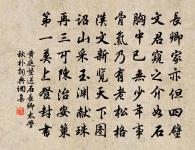 長卿家亦但四壁
文君窺之介如石
胸中已無少年事
骨氣乃有老松格
漢文新覽天下圖
詔山采玉淵獻珠
再三可陳治安策
第一莫上登封書
黃庭堅送石長卿太學
秋補詞典網集